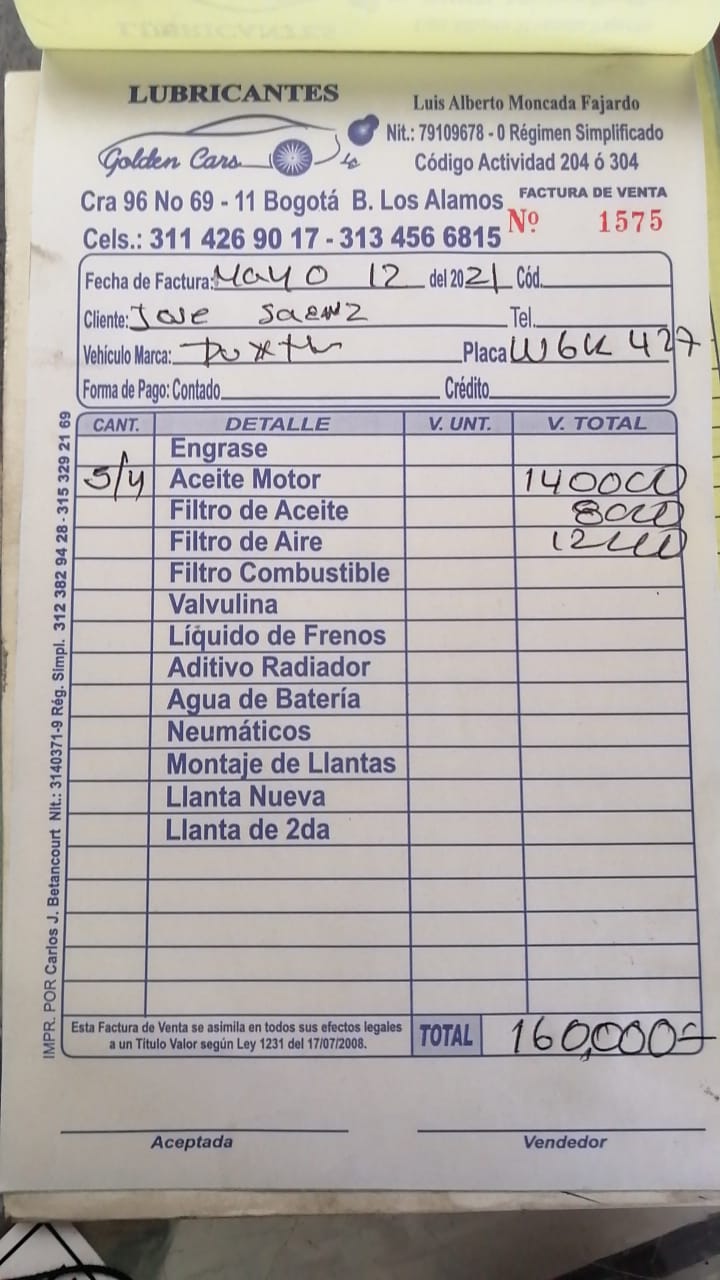 LUBRICANTES
Golden Cars
Luis Alberto Moncada Fajardo
Nit.: 79109678 - 0 Régimen Simplificado
Código Actividad 204 ó 304
Cra 96 No 69 - 11 Bogotá B. Los Alamos
FACTURA DE VENTA
Cels.: 311 426 90 17 - 313 456 6815
Nº 1575
Fecha de Factura: MAYO 12 del 2021 Cód.
Cliente: Jose Saenz Tel.
Vehículo Marca: Placa W6K 427
Forma de Pago: Contado Crédito
CANT. DETALLE V. UNT. V. TOTAL
Engrase
5/4 Aceite Motor 140000
Filtro de Aceite 8000
Filtro de Aire 12000
Filtro Combustible
Valvulina
Líquido de Frenos
Aditivo Radiador
Agua de Batería
Neumáticos
Montaje de Llantas
Llanta Nueva
Llanta de 2da
Esta Factura de Venta se asimila en todos sus efectos legales
a un Título Valor según Ley 1231 del 17/07/2008.
TOTAL 160,000
Aceptada Vendedor
IMPR. POR Carlos J. Betancourt Nit.: 3140371-9 Rég. Simpl. 312 382 94 28 - 315 329 21 69